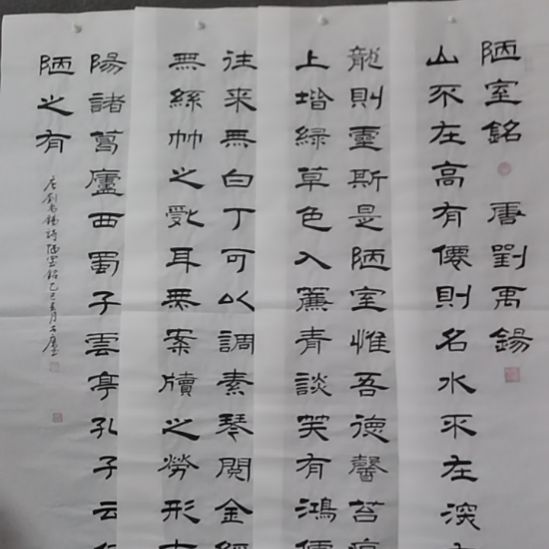 陋室銘 唐劉禹錫
山不在高有僊則名水不在深
龍則靈斯是陋室惟吾德馨苔痕
上堦緑草色入簾青談笑有鴻儒
往来無白丁可以調素琴閱金經
無絲竹之亂耳無案牘之勞形
陽諸葛廬西蜀子雲亭孔子云
陋之有
唐劉禹錫詩陋室銘乙巳